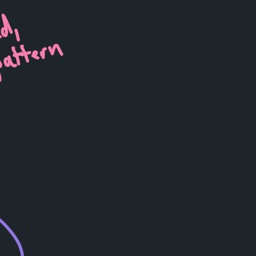 d,
pattern